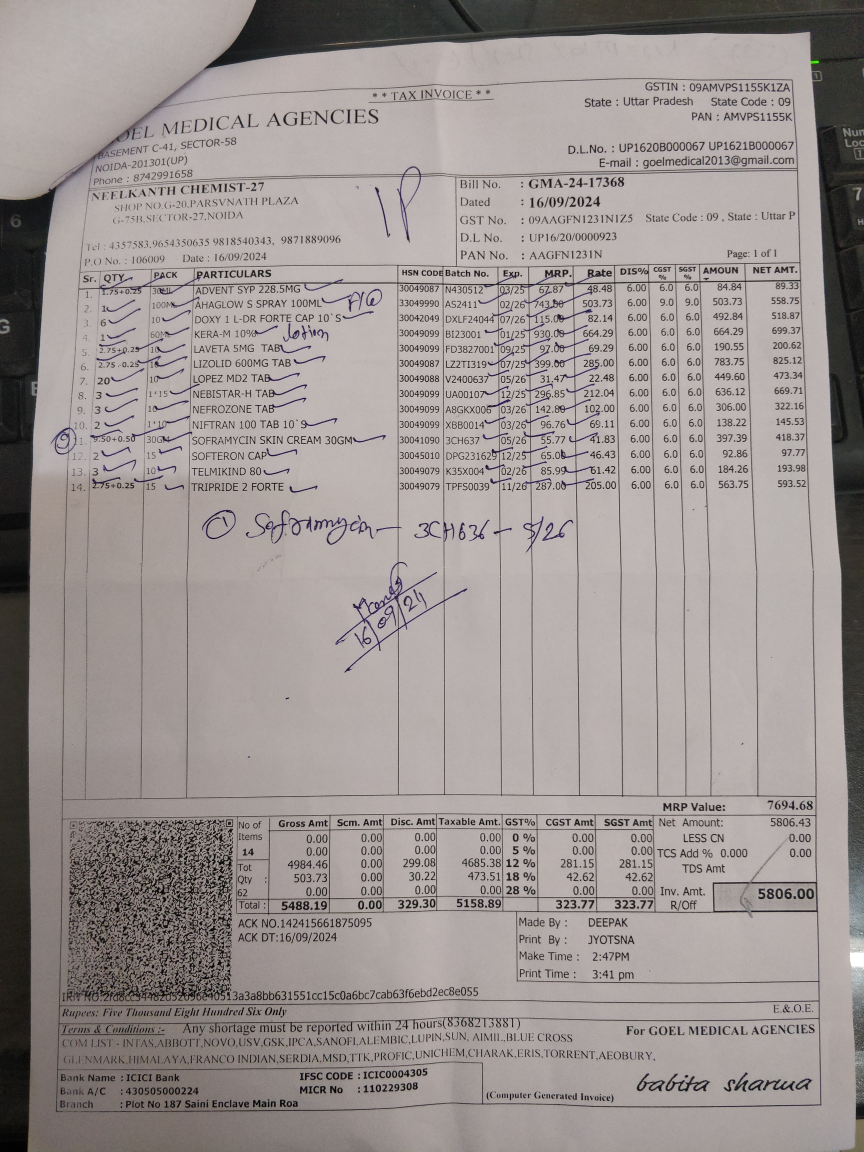 * * TAX INVOICE * *
GSTIN : 09AMVPS1155K1ZA
State : Uttar Pradesh State Code : 09
PAN : AMVPS1155K
GOEL MEDICAL AGENCIES
BASEMENT C-41, SECTOR-58
NOIDA-201301(UP)
Phone : 8742991658
D.L.No. : UP1620B000067 UP1621B000067
E-mail : goelmedical2013@gmail.com
NEELKANTH CHEMIST-27
SHOP NO.G-20,PARSVNATH PLAZA
G-75B,SECTOR-27,NOIDA
Tel : 4357583,9654350635 9818540343, 9871889096
P.O No. : 106009 Date : 16/09/2024
IP
Bill No. : GMA-24-17368
Dated : 16/09/2024
GST No. : 09AAGFN1231N1Z5 State Code : 09 , State : Uttar P
D.L No. : UP16/20/0000923
PAN No. : AAGFN1231N Page: 1 of 1
Sr. QTY PACK PARTICULARS HSN CODE Batch No. Exp. MRP. Rate DIS% CGST % SGST % AMOUN NET AMT.
1. 1.75+0.25 30ML ADVENT SYP 228.5MG 30049087 N430512 03/25 62.87 48.48 6.00 6.0 6.0 84.84 89.33
2. 1 100ML AHAGLOW S SPRAY 100ML 33049990 A52411 02/26 743.00 503.73 6.00 9.0 9.0 503.73 558.75
3. 6 10 DOXY 1 L-DR FORTE CAP 10`S 30042049 DXLF24044 07/26 115.00 82.14 6.00 6.0 6.0 492.84 518.87
4. 1 60ML KERA-M 10% lotion 30049099 BI23001 01/25 930.00 664.29 6.00 6.0 6.0 664.29 699.37
5. 2.75+0.25 10 LAVETA 5MG TAB 30049099 FD3827001 09/25 97.00 69.29 6.00 6.0 6.0 190.55 200.62
6. 2.75+0.25 10 LIZOLID 600MG TAB 30049087 LZ2TI319 07/25 399.00 285.00 6.00 6.0 6.0 783.75 825.12
7. 20 10 LOPEZ MD2 TAB 30049088 V2400637 05/26 31.47 22.48 6.00 6.0 6.0 449.60 473.34
8. 3 1*15 NEBISTAR-H TAB 30049099 UA00107 12/25 296.85 212.04 6.00 6.0 6.0 636.12 669.71
9. 3 10 NEFROZONE TAB 30049099 A8GKX006 03/26 142.80 102.00 6.00 6.0 6.0 306.00 322.16
10. 2 1*10 NIFTRAN 100 TAB 10`S 30049099 XBB0014 03/26 96.76 69.11 6.00 6.0 6.0 138.22 145.53
9 11. 9.50+0.50 30GM SOFRAMYCIN SKIN CREAM 30GM 30041090 3CH637 05/26 55.77 41.83 6.00 6.0 6.0 397.39 418.37
12. 2 15 SOFTERON CAP 30045010 DPG231629 12/25 65.00 46.43 6.00 6.0 6.0 92.86 97.77
13. 3 10 TELMIKIND 80 30049079 K35X004 02/26 85.99 61.42 6.00 6.0 6.0 184.26 193.98
14. 2.75+0.25 15 TRIPRIDE 2 FORTE 30049079 TPFS0039 11/26 287.00 205.00 6.00 6.0 6.0 563.75 593.52
1 Soframycin - 3CH636 - 5/26
16/09/24
MRP Value: 7694.68
No of Items 14 Gross Amt Scm. Amt Disc. Amt Taxable Amt. GST% CGST Amt SGST Amt Net Amount: 5806.43
0.00 0.00 0.00 0.00 0 % 0.00 0.00 LESS CN 0.00
0.00 0.00 0.00 0.00 5 % 0.00 0.00 TCS Add % 0.000 0.00
Tot 4984.46 0.00 299.08 4685.38 12 % 281.15 281.15 TDS Amt
Qty : 503.73 0.00 30.22 473.51 18 % 42.62 42.62
62 0.00 0.00 0.00 0.00 28 % 0.00 0.00 Inv. Amt. 5806.00
Total : 5488.19 0.00 329.30 5158.89 323.77 323.77 R/Off
ACK NO.142415661875095
ACK DT:16/09/2024
Made By : DEEPAK
Print By : JYOTSNA
Make Time : 2:47PM
Print Time : 3:41 pm
Rupees: Five Thousand Eight Hundred Six Only E.& O.E.
Terms & Conditions :- Any shortage must be reported within 24 hours(8368213881)
COM LIST - INTAS,ABBOTT,NOVO,USV,GSK,IPCA,SANOFI,ALEMBIC,LUPIN,SUN, AIMIL,BLUE CROSS
GLENMARK,HIMALAYA,FRANCO INDIAN,SERDIA,MSD,TTK,PROFIC,UNICHEM,CHARAK,ERIS,TORRENT,AEOBURY,
For GOEL MEDICAL AGENCIES
Bank Name : ICICI Bank IFSC CODE : ICIC0004305
Bank A/C : 430505000224 MICR No : 110229308
Branch : Plot No 187 Saini Enclave Main Roa
(Computer Generated Invoice)
babita sharma